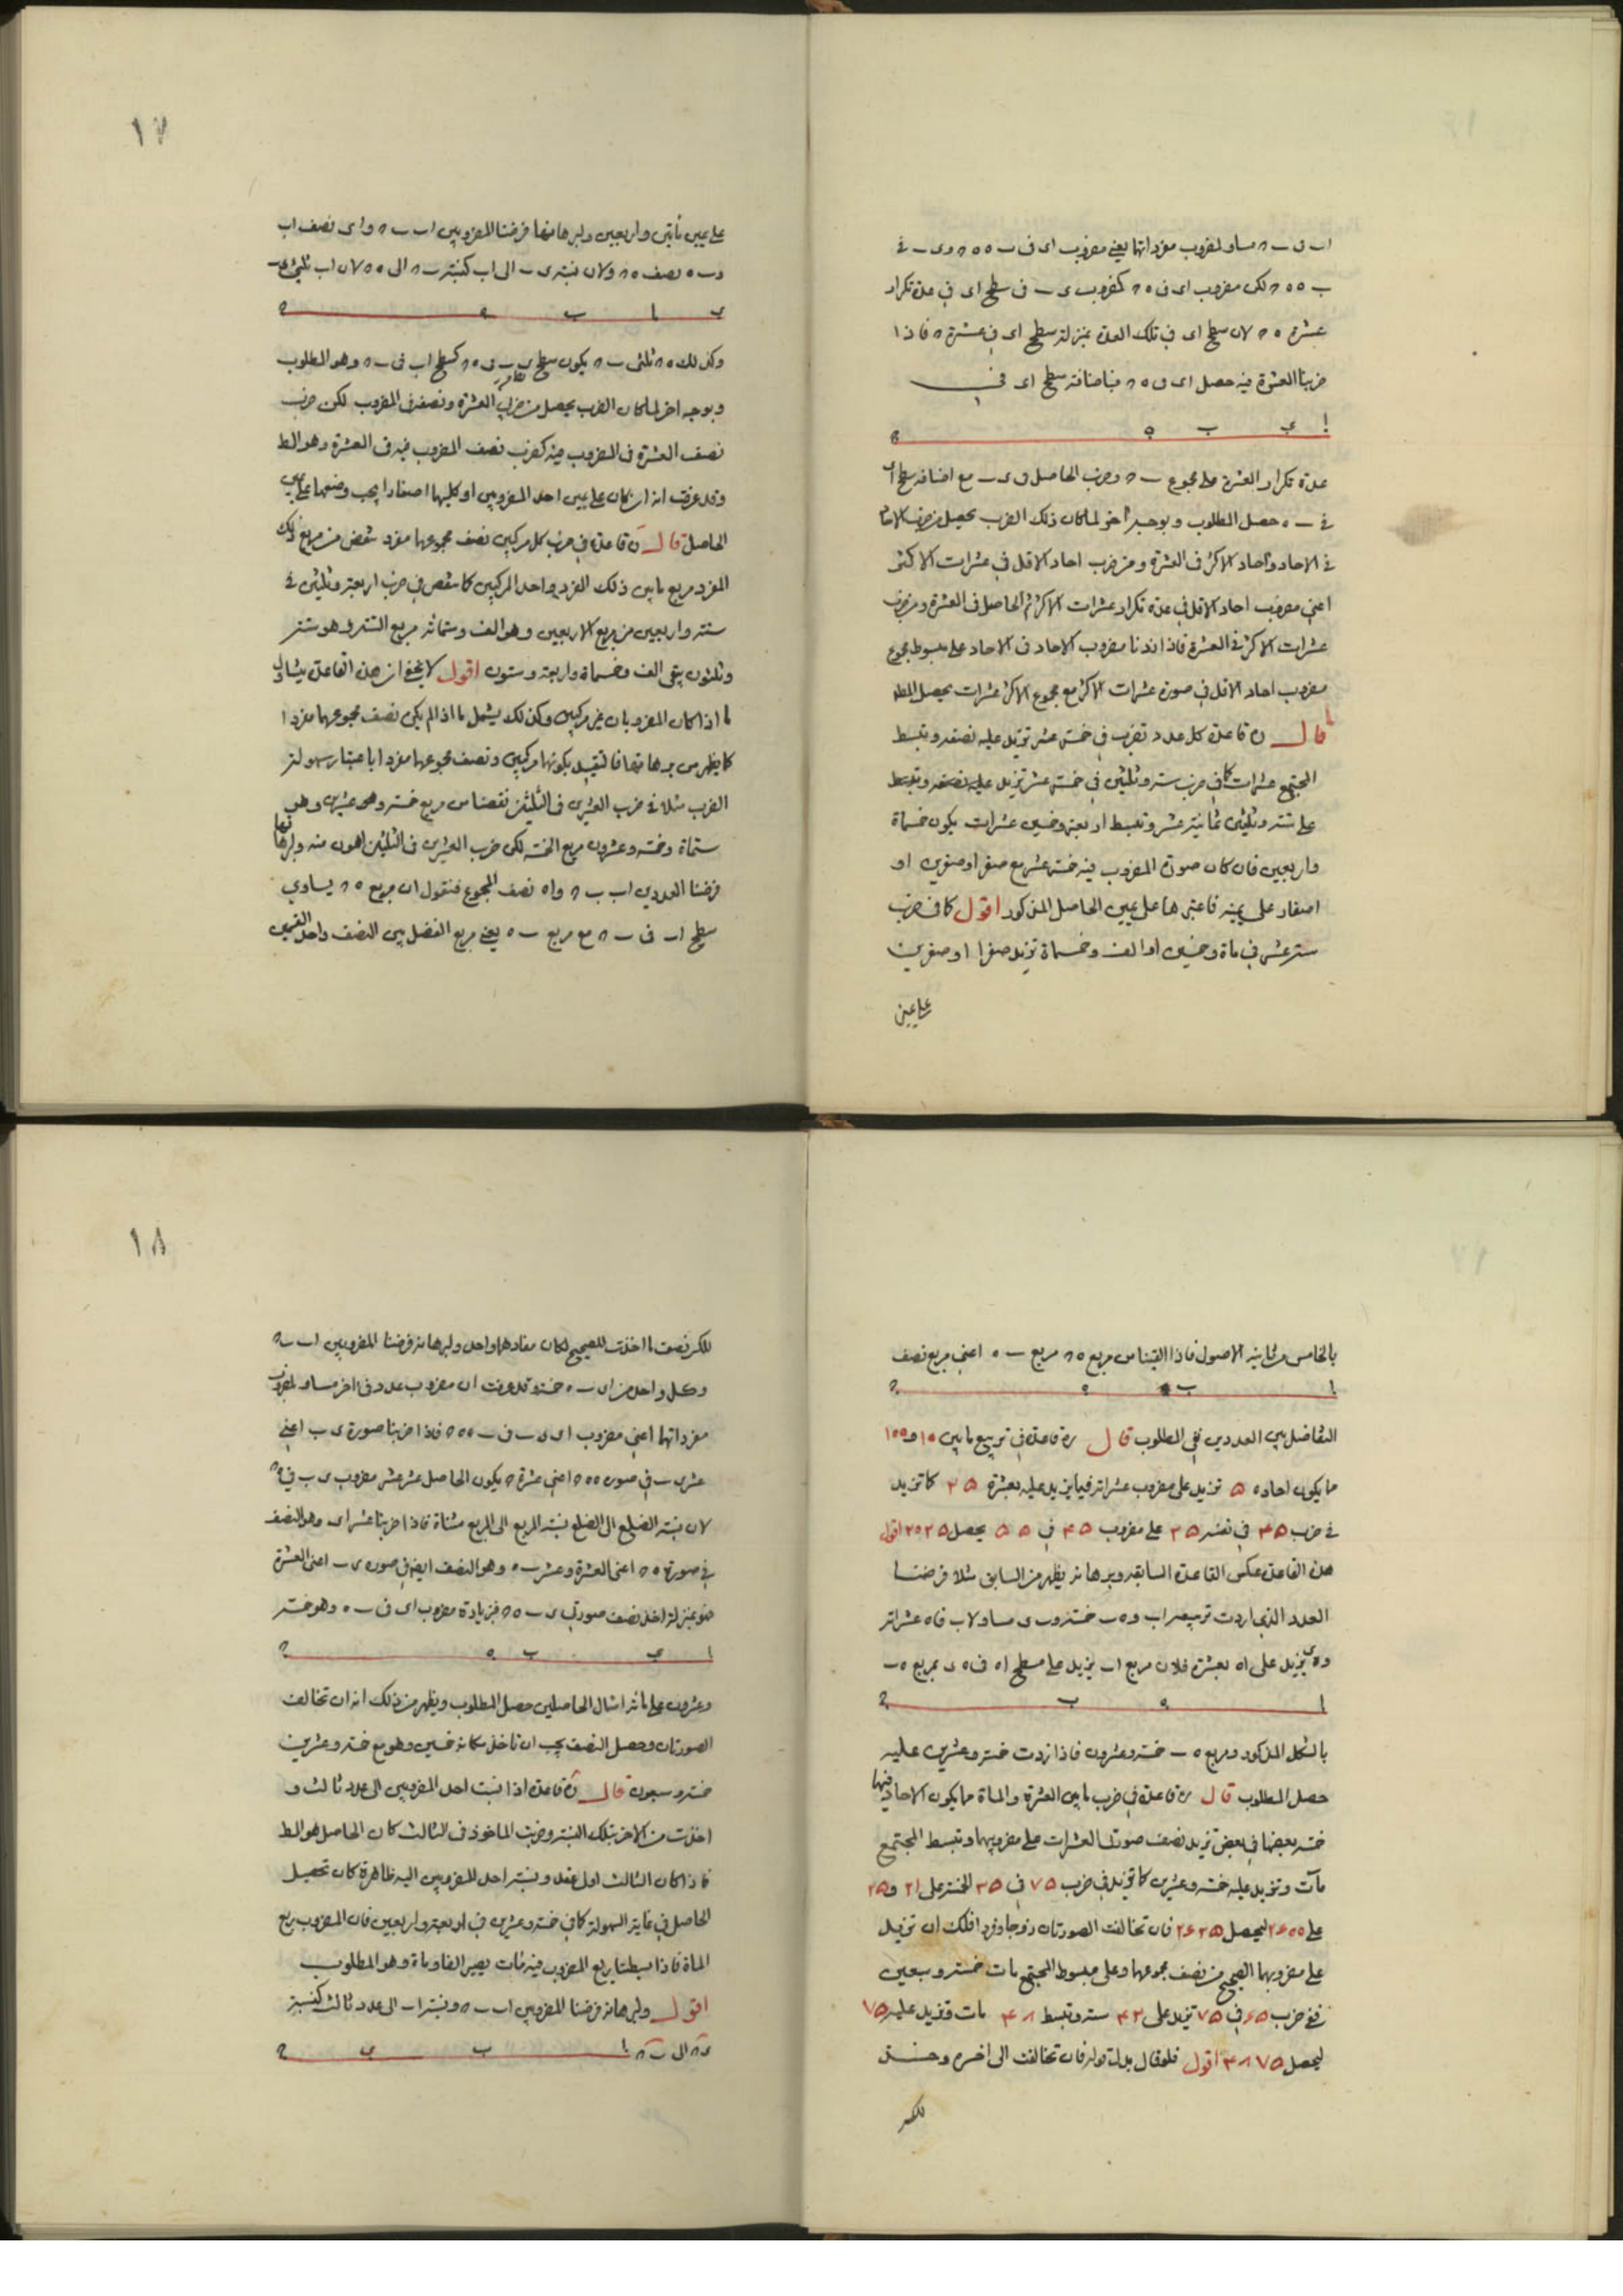 اب فى ب ح مساو لمضروب مفرداتها يعنى مضروب اى فى ب ه ه ح وى ب فى
ب ه ه ح لكن مضروب اى فى ه ح كمضروب ى ب فى سطح اى فى عدة تكرار
عشرة ه ح لان سطح اى فى تلك العدة بمنزلة سطح اى فى عشرة ح فاذا
ضربنا العشرة فيه حصل اى فى ه ح فباضافة سطح اى فى
ا ى ب ه ح
عدة تكرار العشرة على مجموع ب ح وضرب الحاصل فى ى ب مع اضافة سطح اى
فى ب ه حصل المطلوب وبوجه اخر لما كان ذلك الضرب يحصل من ضرب الاحاد
فى الاحاد واحاد الاكثر فى العشرة ومن ضرب احاد الاقل فى عشرات الاكثر
اعنى مضروب احاد الاقل فى عدة تكرار عشرات الاكثر ثم الحاصل فى العشرة ومن ضرب
عشرات الاكثر فى العشرة فاذا زدنا مضروب الاحاد فى الاحاد على مبسوط مجموع
مضروب احاد الاقل فى صورة عشرات الاكثر مع مجموع الاكثر عشرات يحصل المط
قال ن قاعدة كل عدد تضرب فى خمسة عشر تزيد عليه نصفه وتبسط
المجتمع عشرات كما فى ضرب ستة وثلثين فى خمسة عشر تزيد عليه نصفه وتبسط
على ستة وثلثين ثمانية عشر وتبسط اربعة وخمسين عشرات يكون خمسماة
واربعين فان كان صورة المضروب فيه خمسة عشر مع صفر او صفرين او
اصفار على يمينه فاعتبرها على يمين الحاصل المذكور اقول كما فى ضرب
ستة عشر فى ماة وخمسين او الف وخمسماة تزيد صفرا او صفرين
على يمين
١٧
على يمين مأتين واربعين وبرهانها فرضنا المضروبين اب ب ح واى نصف اب
وب ه نصف ه ح ولان نسبة ى ب الى اب كنسبة ب ح الى ه ح لان اب ثلثى ى ب
ى ا ب ه ح
وكذلك ه ح ثلثى ب ح يكون سطح ى ب فى ه ح كسطح اب فى ب ح وهو المطلوب
وبوجه اخر لما كان الضرب يحصل من ضرب العشرة ونصفها فى المضروب لكن ضرب
نصف العشرة فى المضروب فيه كضرب نصف المضروب فيه فى العشرة وهو المط
وقد عرفت انه ان كان على يمين احد المضروبين او كليهما اصفار ا يجب وضعها على يمين
الحاصل قال ن قاعدة فى ضرب كل مركبين نصف مجموعهما مفرد تنقص من مربع ذلك
المفرد مربع ما بين ذلك المفرد واحد المركبين كما تنقص فى ضرب اربعة وثلثين فى
ستة واربعين من مربع الاربعين وهو الف وستمائة مربع الستة وهو ستة
وثلثون يبقى الف وخمسماة واربعة وستون اقول لا يخفى ان هذه القاعدة يشمل
ما اذا كان المضروبان غير مركبين وكذلك يشمل ما اذا لم يكن نصف مجموعهما مفردا
كما يظهر من برهانها فالتقييد بكونهما مركبين ونصف مجموعهما مفردا باعتبار سهولة
الضرب مثلا فى ضرب العشرين فى الثلثين نقصنا من مربع خمسة وعشرين وهو
ستماة وخمسة وعشرون مربع الخمسة لكن ضرب العشرين فى الثلثين اهون منه وبرهانها
فرضنا العددين اب ب ح واه نصف المجموع فنقول ان مربع ه ح يساوى
سطح اب فى ب ح مع مربع ب ه يعنى مربع الفضل بين النصف واحد القسمين
بالخامس من ثانية الاصول فاذا القينا من مربع ه ح مربع ب ه اعنى مربع نصف
ا ب ه ح
التفاضل بين العددين بقى المطلوب قال ن قاعدة فى تربيع ما بين ١٥ و١٥٥
مما يكون احاده ۵ تزيد على مضروب عشراته فيما يزيد عليه بعشرة ۲۵ كما تزيد
فى ضرب ۴۵ فى نفسه ۲۵ على مضروب ۴۵ فى ۵۵ يحصل ۲۰۲۵ اقول
هذه القاعدة عكس القاعدة السابقة وبرهانه يظهر من السابق مثلا فرضنا
العدد الذى اردت تربيعه اب وه ب خمسة وب ى مساو لاب فاه عشراته
وه ى يزيد على اه بعشرة فلان مربع اب يزيد على مسطح اه فى ه ى بمربع ه ب
ا ه ب ح
بالشكل المذكور ومربع ه ب خمسة وعشرون فاذا زدت خمسة وعشرين عليه
حصل المطلوب قال ن قاعدة فى ضرب ما بين العشرة والماة مما يكون الاحاد فيها
خمسة بعضها فى بعض تزيد نصف صورتى العشرات على مضروبهما وتبسط المجتمع
مآت وتزيد عليه خمسة وعشرين كما تزيد فى ضرب ۷۵ فى ۳۵ الخمسة على ۲۱ و۲۵
على ۲۶۰۰ ليحصل ۲۶۲۵ فان تخالفت الصورتان زوجا وفردا فلك ان تزيد
على مضروبهما الصحيح من نصف مجموعهما وعلى مبسوط المجتمع مات خمسة وسبعين
ففى ضرب ۶۵ فى ۷۵ تزيد على ۴۲ ستة وتبسط ۴۸ مات وتزيد عليه ۷۵
ليحصل ۴۸۷۵ اقول فلو قال بدل قوله فان تخالفت الى اخره وحذف
للكسر
١٨
للكسر نصف ما اخذت للصحيح لكان مفادهما واحد وبرهانه فرضنا المضروبين اب ب ح
وكل واحد من اى ب ه خمسة وقد عرفت ان مضروب عدد فى اخر مساو لمضروب
مفرداتها اعنى مضروب اى ى ب فى ب ه ه ح فاذا ضربنا صورة ى ب اعنى
عشر ى ب فى صورة ه ح اعنى عشر ه ح يكون الحاصل عشر عشر مضروب ى ب فى ه ح
لان نسبة الضلع الى الضلع نسبة المربع الى المربع مثناة فاذا ضربنا عشر اى وهو النصف
فى صورة ه ح اعنى العشرة وعشر ب ه وهو النصف ايضا فى صورة ى ب اعنى العشرة
فهو بمنزلة اخذ نصف صورتى ى ب ه ح فبزيادة مضروب اى فى ب ه وهو خمسة
ا ى ب ه ح
وعشرون على مائة امثال الحاصلين حصل المطلوب ويظهر من ذلك انه ان تخالف
الصورتان وحصل النصف يجب ان تاخذ مكانه خمسين وهو مع خمسة وعشرين
خمسة وسبعون قال ن قاعدة اذا نسبت احد المضروبين الى عدد ثالث و
اخذت من الاخر بتلك النسبة وضربت الماخوذ فى الثالث كان الحاصل هو المط
فاذا كان الثالث اول عقد ونسبة احد المضروبين اليه ظاهرة كان تحصيل
الحاصل فى غاية السهولة كما فى خمسة وعشرين فى اربعة واربعين فان المضروب ربع
الماة فاذا بسطنا ربع المضروب فيه مات يصير الفا وماة وهو المطلوب
اقول وبرهانه فرضنا المضروبين اب ب ح ونسبة اب الى عدد ثالث كنسبة
ى ح الى ب ح ا ب ى ح